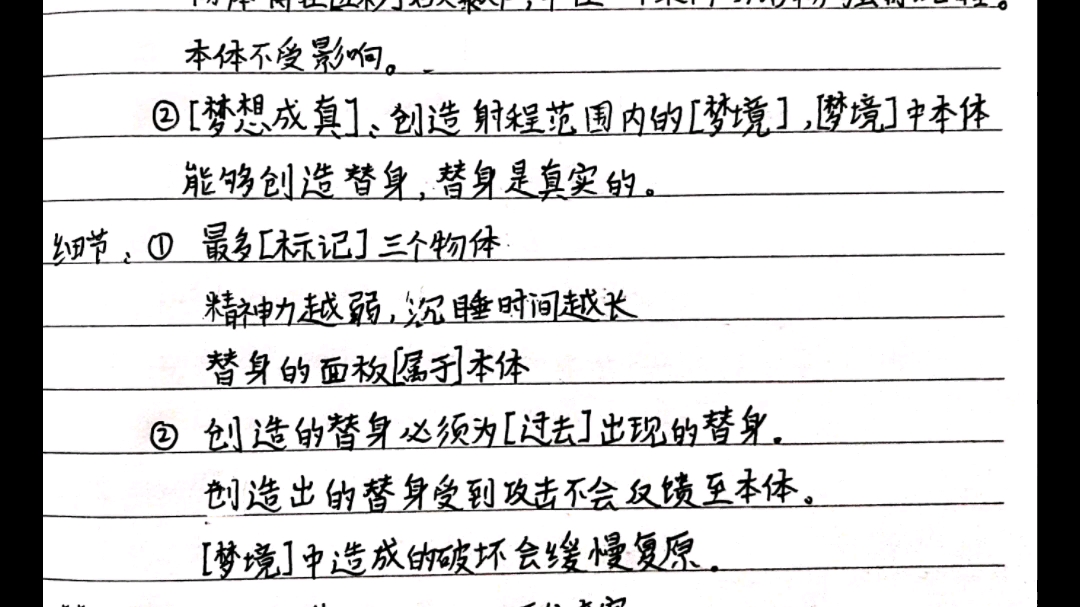 本体不受影响。
②[梦想成真]:创造射程范围内的[梦境],[梦境]中本体
能够创造替身,替身是真实的。
细节:① 最多[标记]三个物体
精神力越弱,沉睡时间越长
替身的面板[属于]本体
② 创造的替身必须为[过去]出现的替身.
创造出的替身受到攻击不会反馈至本体。
[梦境]中造成的破坏会缓慢复原.